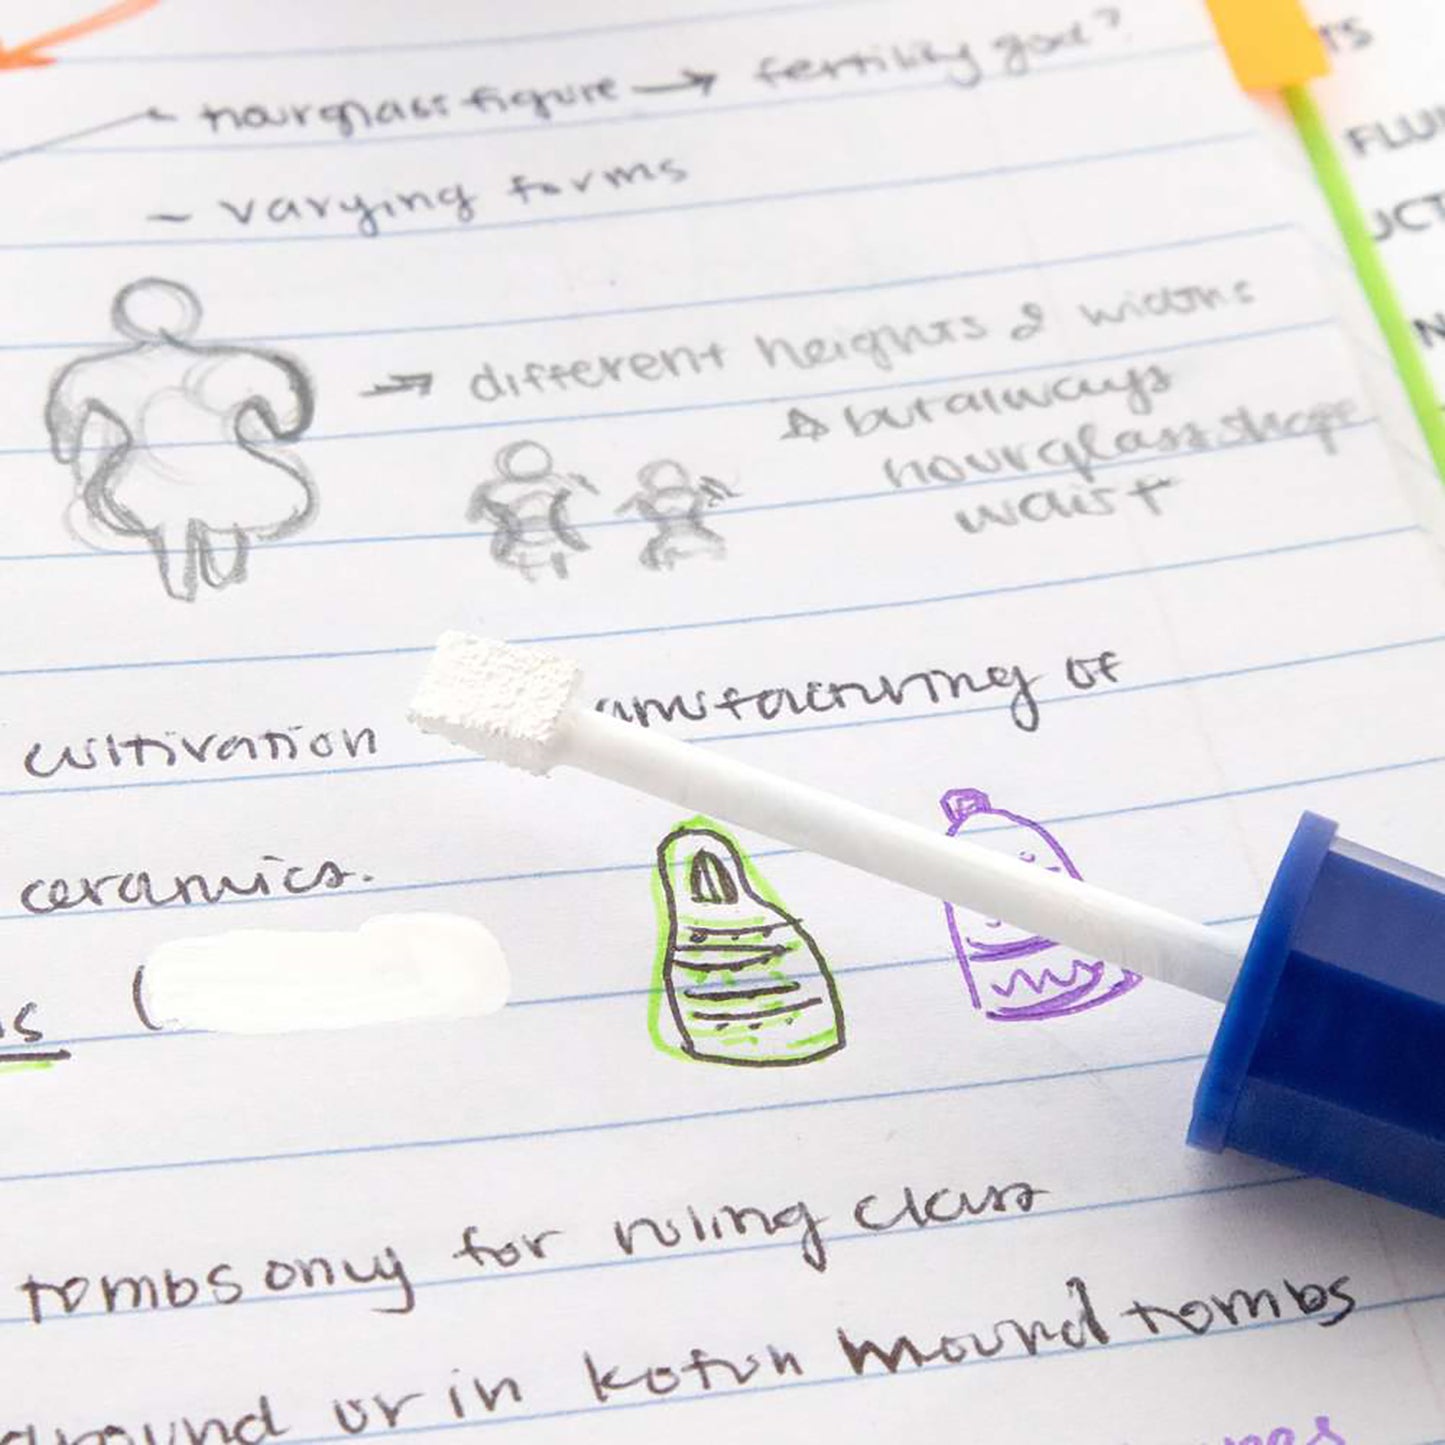 - hourglass figure → fertility god?
- varying forms
→ different heights & widths
☆ but always
hourglass shape
waist
cultivation
anufacturing of
ceramics.
(
tombs only for ruling class
ground or in kofun mound tombs
FLU
UCT